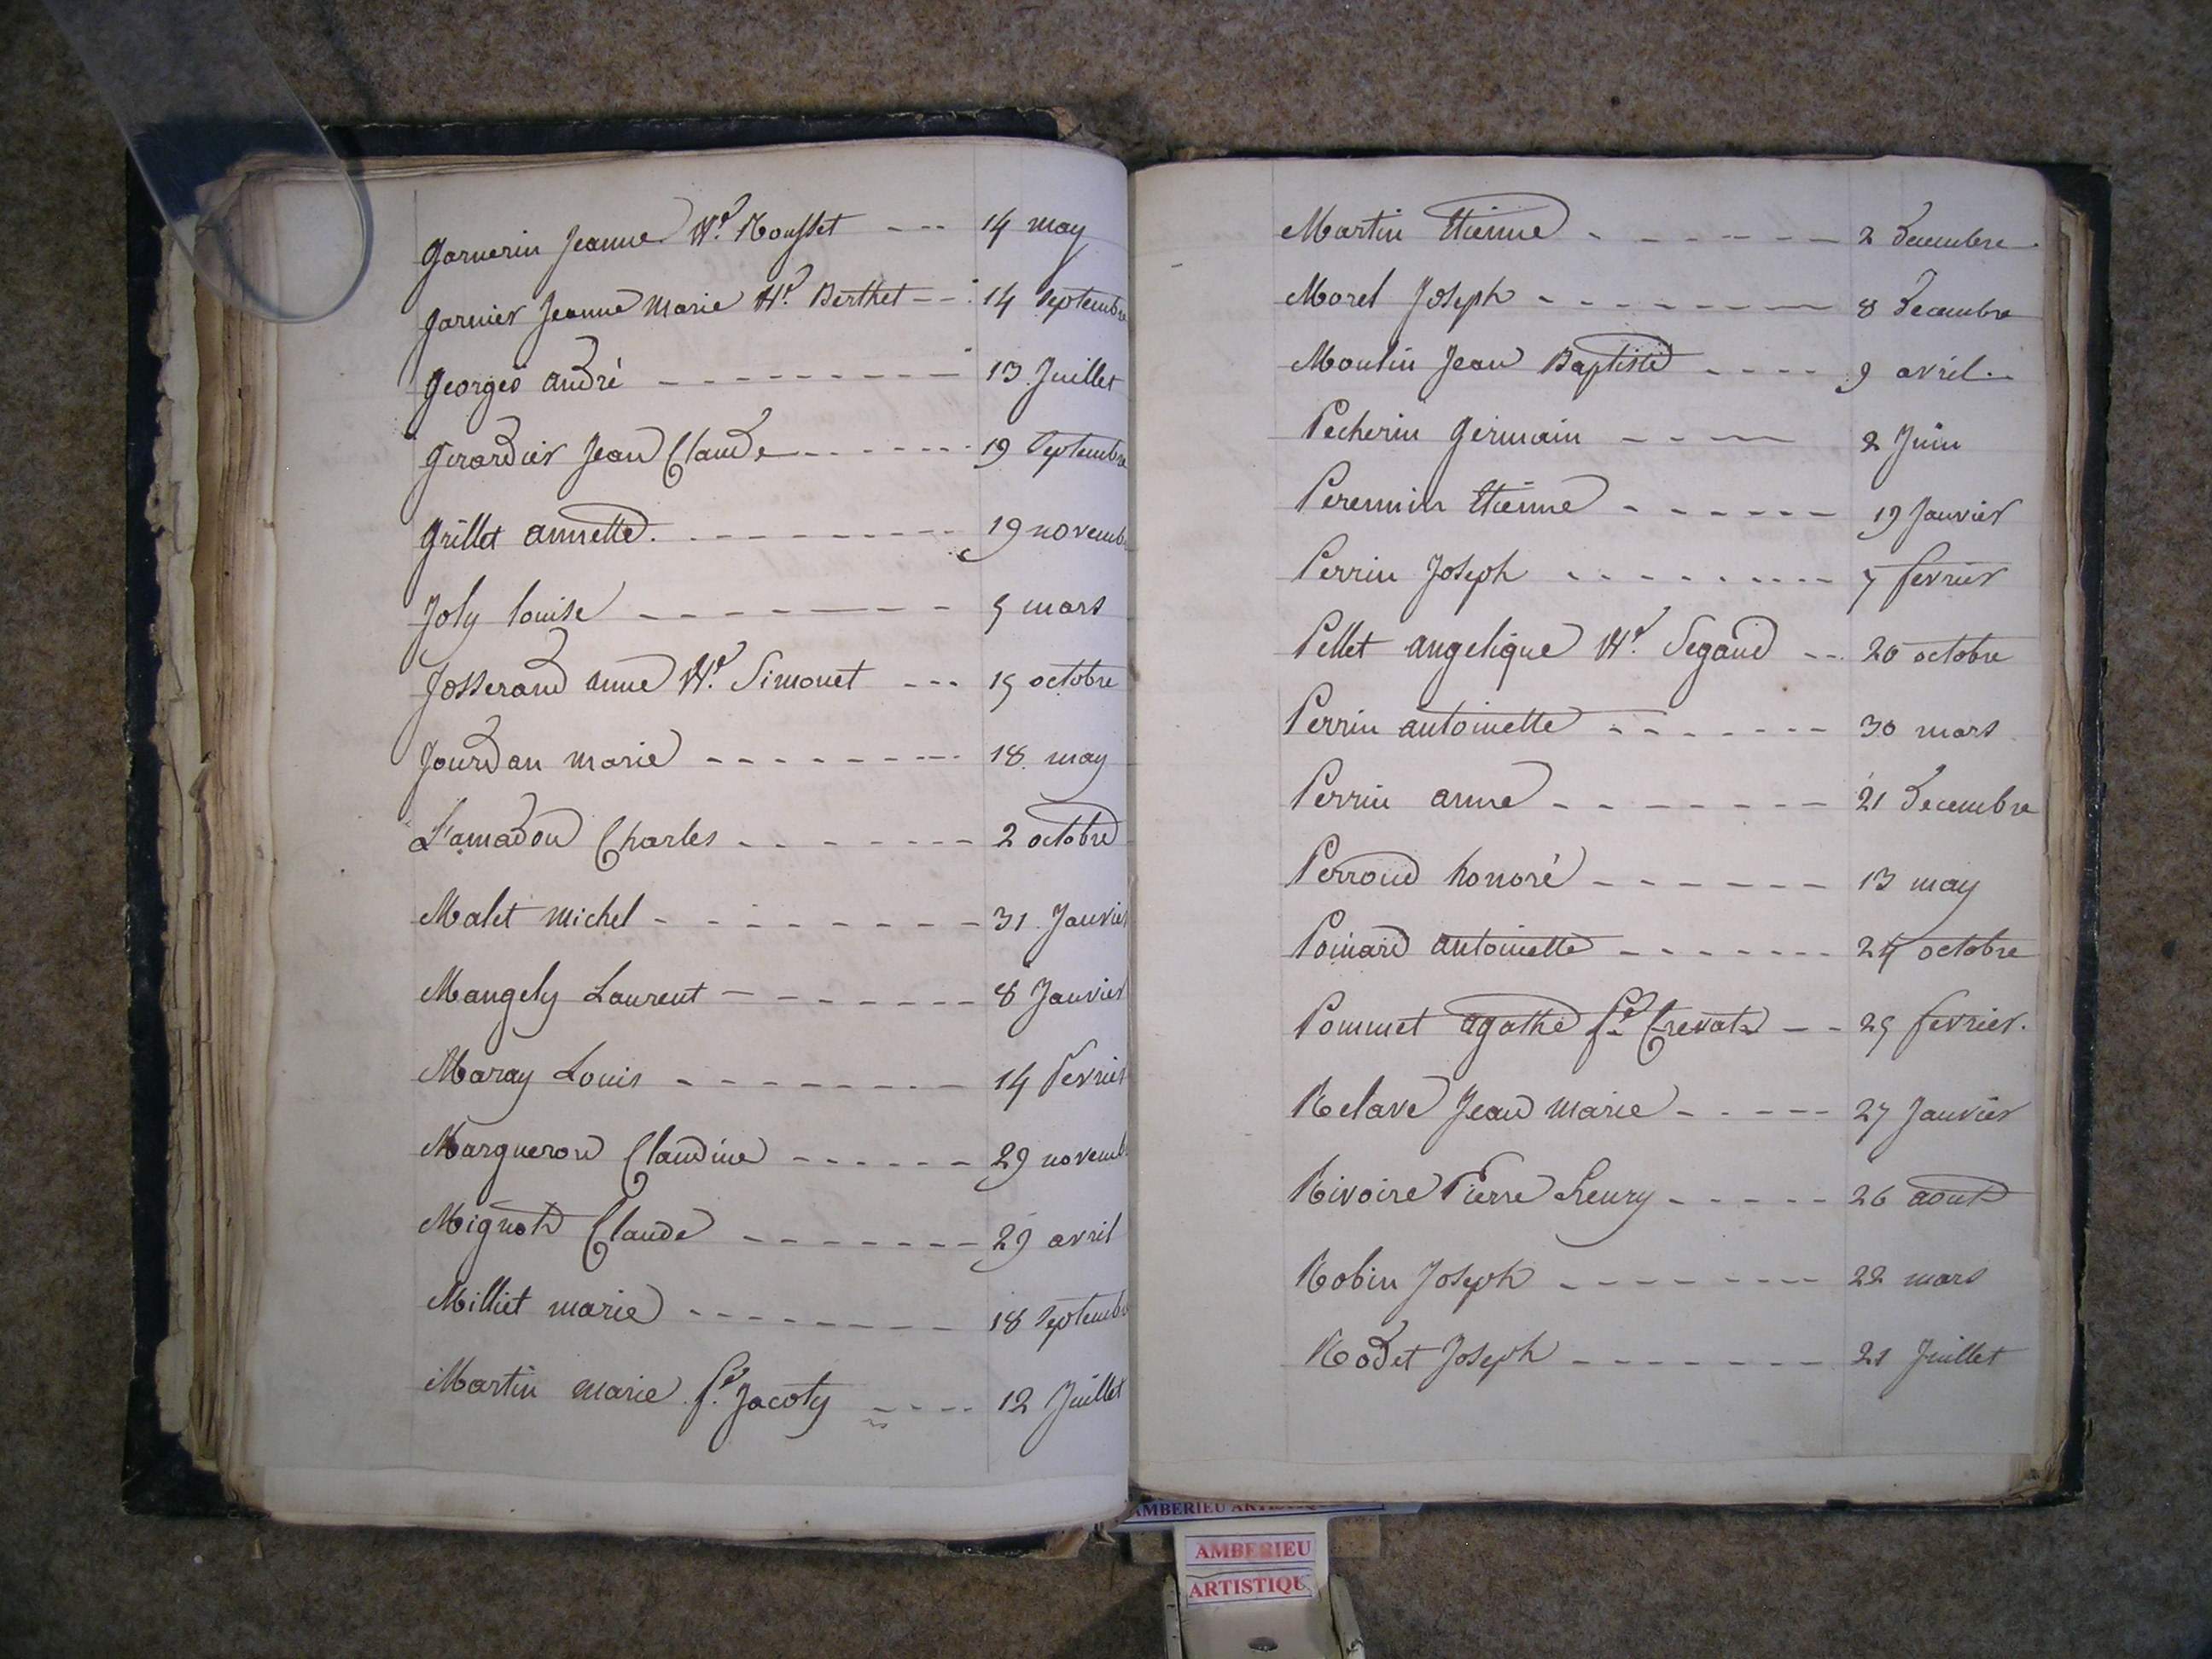 Garnerin Jeanne Ve. Rousset --- 14 may
Garnier Jeanne Marie Ve. Berthet --- 14 Septembre
Georges andré --------- 13 Juillet
Girardier Jean Claude ------- 19 Septembre
Grillet annette. --------- 19 novemb
Joly louise -------- 5 mars
Josserand anne Ve. Simonet --- 15 octobre
Jourdan marie -------- 18 may
L'amadou Charles ------- 2 octobre
Malet Michel --------- 31 Janvier
Mangely Laurent ------- 8 Janvier
Maray Louis -------- 14 Fevrier
Margueron Claudine ------ 29 novemb
Mignot Claude ------- 29 avril
Milliet marie -------- 18 Septembre
Martin marie fe. Jacoty ---- 12 Juillet
Martin Etienne ------- 2 Decembre
Morel Joseph -------- 8 Decembre
Moulin Jean Baptiste ---- 9 avril
Pecherin Germain ---- 2 Juin
Peremin Etienne ------ 19 Janvier
Perrin Joseph -------- 7 fevrier
Pellet angelique Ve. Segaud -- 20 octobre
Perrin antoinette ------- 30 mars
Perrin anne -------- 21 Decembre
Perroud honoré ------ 13 may
Poinard antoinette ------- 24 octobre
Pommet agathe fe. Crevat -- 25 fevrier.
Relave Jean Marie ----- 27 Janvier
Rivoire Pierre henry ----- 26 aout
Robin Joseph -------- 22 mars
Rodet Joseph ------- 21 Juillet
AMBERIEU
AMBERIEU
ARTISTIQU